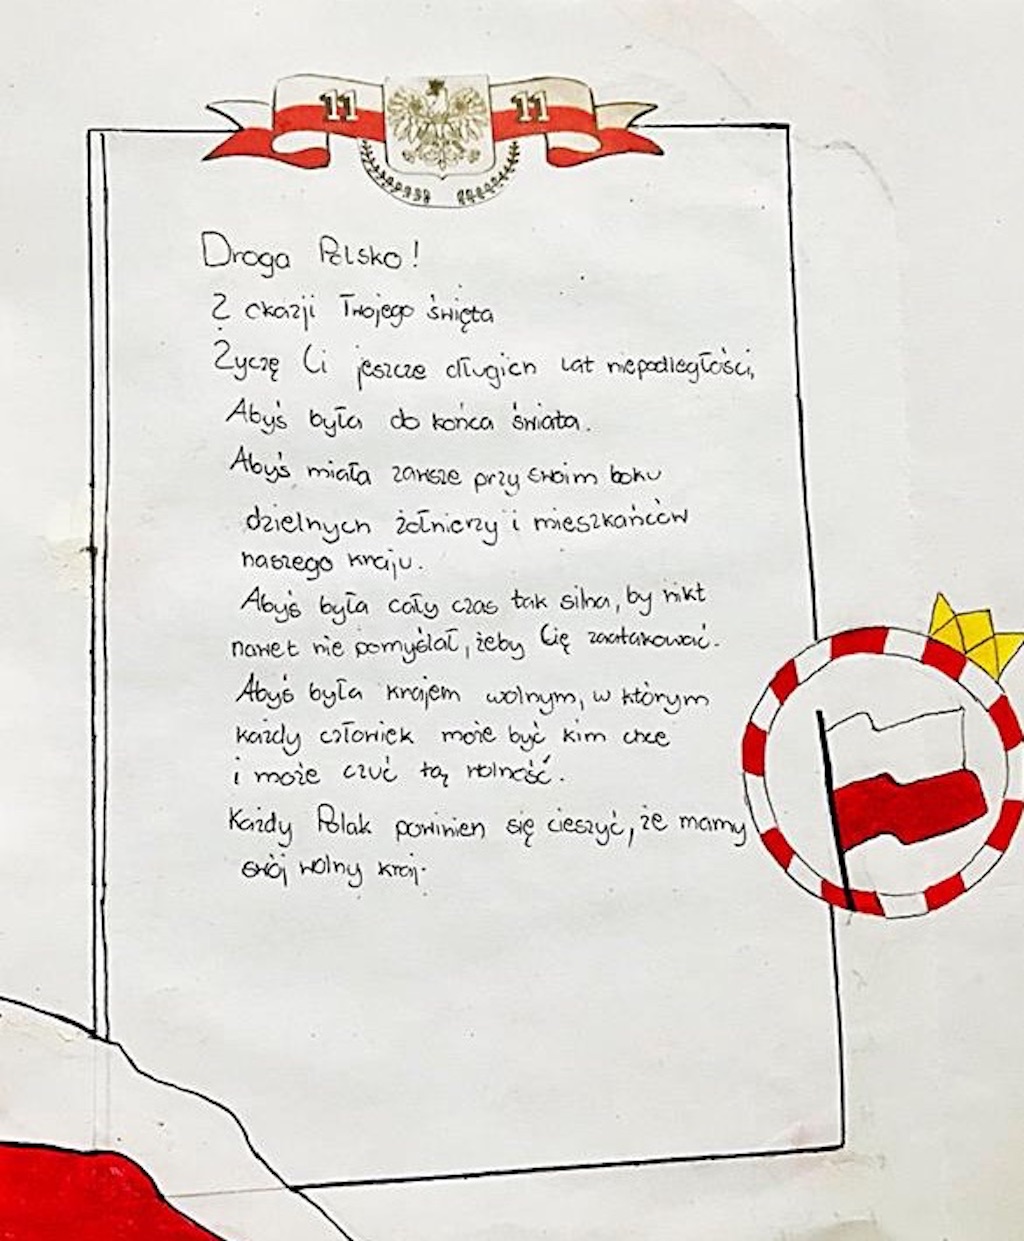 11 11
Droga Polsko!
Z okazji Twojego święta
Życzę Ci jeszcze długich lat niepodległości,
Abyś była do końca świata.
Abyś miała zawsze przy swoim boku
dzielnych żołnierzy i mieszkańców
naszego kraju.
Abyś była cały czas tak silna, by nikt
nawet nie pomyślał, żeby Cię zaatakować.
Abyś była krajem wolnym, w którym
każdy człowiek może być kim chce
i może czuć tą wolność.
Każdy Polak powinien się cieszyć, że mamy
swój wolny kraj.